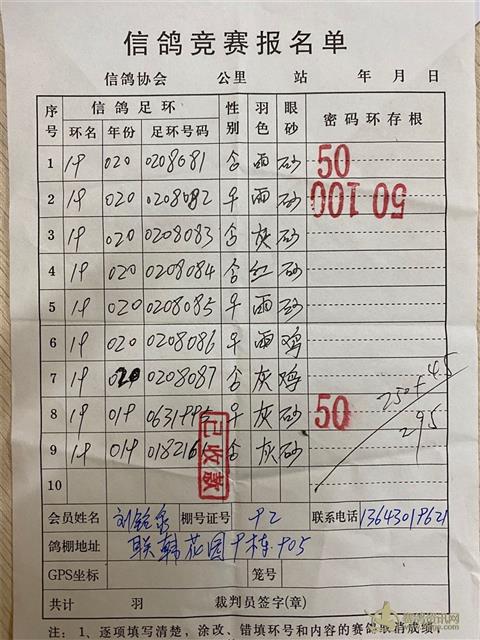 信鸽竞赛报名单
信鸽协会 公里 站 年 月 日
序号 信鸽足环 性别 羽色 眼砂 密码环存根
环名 年份 足环号码
1 19 020 0208081 合 雨 砂 50
2 19 020 0208082 平 雨 砂 50 100
3 19 020 0208083 合 灰 砂
4 19 020 0208084 合 红 砂
5 19 020 0208085 平 雨 砂
6 19 020 0208086 平 雨 鸡
7 19 020 0208087 合 灰 鸡
8 19 019 灰 砂 50 250+45
9 19 019 灰 砂 295
10
已收款
会员姓名 刘 棚号证号 联系电话
鸽棚地址 联韩花园
GPS坐标 笼号
共计 羽 裁判员签字(章)
注：1、逐项填写清楚，涂改、错填环号和内容的赛鸽取消成绩